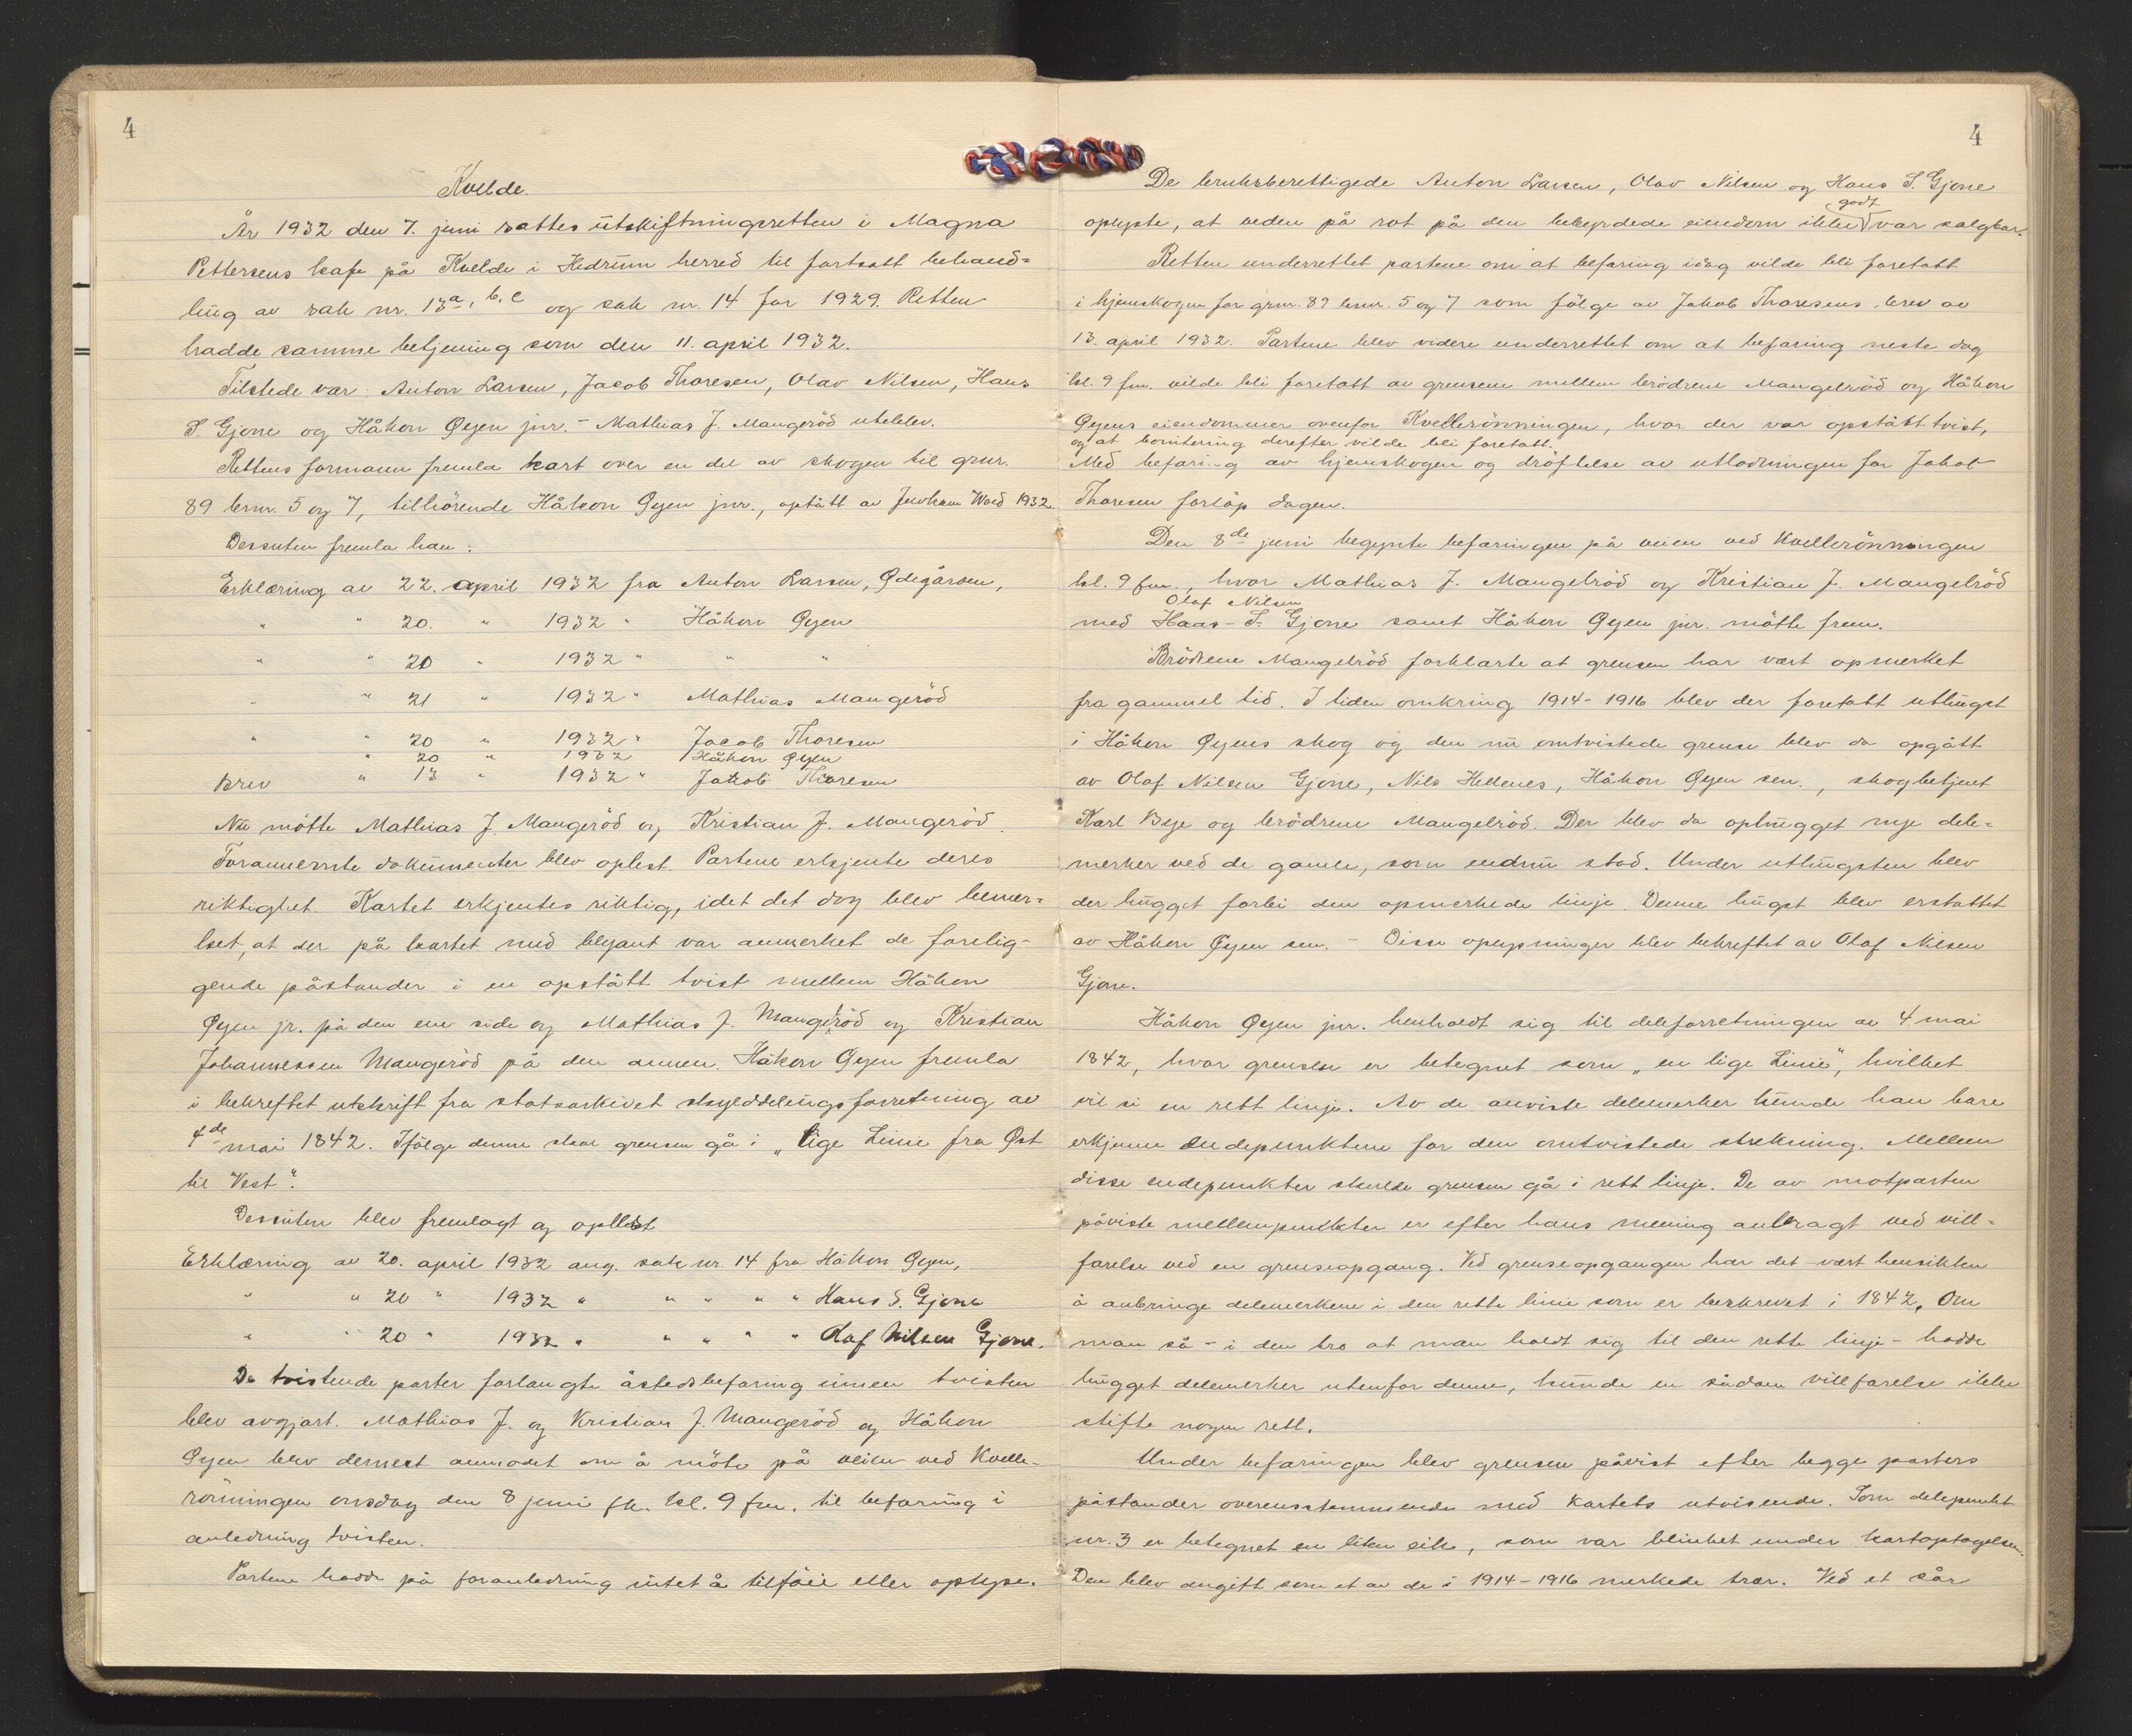 4
Kvelde.
År 1932 den 7. juni sattes utskiftningsretten i Magna
Pettersens kafe på Kvelde i Hedrum herred til fortsatt behand=
ling av sak nr. 13a, b, c og sak nr. 14 for 1929. Retten
hadde samme betjening som den 11. april 1932.
Tilstede var: Anton Larsen, Jacob Thoresen, Olav Nilsen, Hans
S. Gjone og Håkon Øyen jnr. - Mathias J. Mangeröd uteblev.
Rettens formann fremla kart over en del av skogen til grnr.
89 brnr. 5 og 7, tilhörende Håkon Øyen jnr., optått av 1932.
Dessuten fremla han:
Erklæring av 22. april 1932 fra Anton Larsen, Ødegården,
" " 20. " 1932 " Håkon Øyen
" " 20 " 1932 " " "
" " 21 " 1932 " Mathias Mangeröd
" " 20 " 1932 " Jacob Thoresen
" 20 1932 Håkon Øyen
Brev " 13 " 1932 " Jakob Thoresen
Nu mötte Mathias J. Mangeröd og Kristian J. Mangeröd.
Forannevnte dokumenter blev oplest. Partene erkjente deres
riktighet. Kartet erkjentes riktig, idet det dog blev bemer=
ket, at der på kartet med blyant var anmerket de forelig-
gende påstander i en opstått tvist mellem Håkon
Øyen jr. på den ene side og Mathias J. Mangelröd og Kristian
Johannessen Mangeröd på den annen. Håkon Øyen fremla
i bekreftet utskrift fra statsarkivet skylddelingsforretning av
4de mai 1842. Ifölge denne skal grensen gå i "lige Linie fra Øst
til Vest".
Dessuten blev fremlagt og oplest
Erklæring av 20. april 1932 ang. sak nr. 14 fra Håkon Øyen,
" " 20 " 1932 " " " " " Hans S. Gjone
" " 20 " 1932 " " " " " Olaf Nilsen Gjone.
De tvistende parter forlangte åstedsbefaring innen tvisten
blev avgjort. Mathias J. og Kristian J. Mangeröd og Håkon
Øyen blev dernest anmodet om å möte på veien ved Kvelle-
rönningen onsdag den 8 juni fk. kl. 9 fm. til befaring i
anledning tvisten.
Partene hadde på foranledning intet å tilföie eller oplyse.
4
De bruksberettigede Anton Larsen, Olav Nilsen og Hans S. Gjone
godt
oplyste, at veden på rot på den bebyrdede eiendom ikke var salgbar.
Retten underrettet partene om at befaring idag vilde bli foretatt
i hjemskogen for grnr. 89 brnr. 5 og 7 som fölge av Jakob Thoresens brev av
13. april 1932. Partene blev videre underrettet om at befaring neste dag
kl. 9 fm. vilde bli foretatt av grensene mellem brödrene Mangelröd og Håkon
Øyens eiendommer ovenfor Kvellerönningen, hvor der var opstått tvist,
og at bonitering derefter vilde bli foretatt.
Med befaring av hjemskogen og dröftelse av utlodningen for Jakob
Thoresen forlöp dagen.
Den 8de juni begynte befaringen på veien ved Kvellerönningen
kl. 9 fm., hvor Mathias J. Mangelröd og Kristian J. Mangelröd
Olaf Nilsen
med Haas S. Gjone samt Håkon Øyen jnr. mötte frem.
Brödrene Mangelröd forklarte at grensen har vært opmerket
fra gammel tid. I tiden omkring 1914-1916 blev der foretatt uthugst
i Håkon Øyens skog og den nu omtvistede grense blev da opgått
av Olaf Nilsen Gjone, Nils Hellenes, Håkon Øyen sen., skogbetjent
Karl Bye og brödrene Mangelröd. Der blev da ophugget nye dele=
merker ved de gamle, som endnu stod. Under uthugsten blev
der hugget forbi den opmerkede linje. Denne hugst blev erstattet
av Håkon Øyen sen. - Disse oplysninger blev bekreftet av Olaf Nilsen
Gjone.
Håkon Øyen jnr. henholdt sig til deleforretningen av 4 mai
1842, hvor grensen er betegnet som "en lige Linie", hvilket
vil si en rett linje. Av de anviste delemerker kunde han bare
erkjenne endepunktene for den omtvistede strekning. Mellem
disse endepunkter skulde grensen gå i rett linje. De av motparten
påviste mellempunkter er efter hans mening anbragt ved vill-
farelse ved en grenseopgang. Ved grenseopgangen har det vært hensikten
å anbringe delemerkene i den rette linie som er beskrevet i 1842. Om
man så - i den tro at man holdt sig til den rette linje - hadde
hugget delemerker utenfor denne, kunde en sådan villfarelse ikke
stifte nogen rett.
Under befaringen blev grensen påvist efter begge parters
påstander overensstemmende med kartets utvisende. Som delepunkt
nr. 3 er betegnet en liten eik, som var blinket under kartoptagelsen.
Den blev angitt som et av de i 1914-1916 merkede trær. Ved et sår